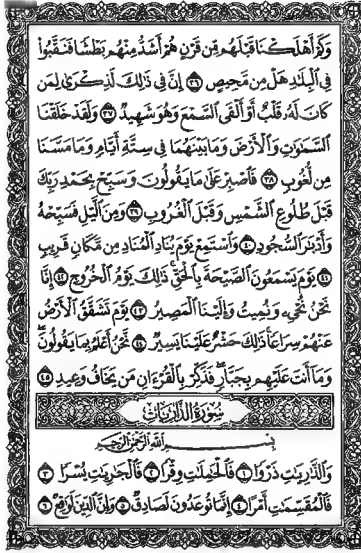 وَكَمْ أَهْلَكْنَا قَبْلَهُم مِّن قَرْنٍ هُمْ أَشَدُّ مِنْهُم بَطْشًا فَنَقَّبُوا۟
فِى ٱلْبِلَٰدِ هَلْ مِن مَّحِيصٍ ٣٦ إِنَّ فِى ذَٰلِكَ لَذِكْرَىٰ لِمَن
كَانَ لَهُۥ قَلْبٌ أَوْ أَلْقَى ٱلسَّمْعَ وَهُوَ شَهِيدٌ ٣٧ وَلَقَدْ خَلَقْنَا
ٱلسَّمَٰوَٰتِ وَٱلْأَرْضَ وَمَا بَيْنَهُمَا فِى سِتَّةِ أَيَّامٍ وَمَا مَسَّنَا
مِن لُّغُوبٍ ٣٨ فَٱصْبِرْ عَلَىٰ مَا يَقُولُونَ وَسَبِّحْ بِحَمْدِ رَبِّكَ
قَبْلَ طُلُوعِ ٱلشَّمْسِ وَقَبْلَ ٱلْغُرُوبِ ٣٩ وَمِنَ ٱلَّيْلِ فَسَبِّحْهُ
وَأَدْبَٰرَ ٱلسُّجُودِ ٤٠ وَٱسْتَمِعْ يَوْمَ يُنَادِ ٱلْمُنَادِ مِن مَّكَانٍ قَرِيبٍ
٤١ يَوْمَ يَسْمَعُونَ ٱلصَّيْحَةَ بِٱلْحَقِّ ذَٰلِكَ يَوْمُ ٱلْخُرُوجِ ٤٢ إِنَّا
نَحْنُ نُحْىِۦ وَنُمِيتُ وَإِلَيْنَا ٱلْمَصِيرُ ٤٣ يَوْمَ تَشَقَّقُ ٱلْأَرْضُ
عَنْهُمْ سِرَاعًا ذَٰلِكَ حَشْرٌ عَلَيْنَا يَسِيرٌ ٤٤ نَّحْنُ أَعْلَمُ بِمَا يَقُولُونَ
وَمَا أَنتَ عَلَيْهِم بِجَبَّارٍ فَذَكِّرْ بِٱلْقُرْءَانِ مَن يَخَافُ وَعِيدِ ٤٥
سُورَةُ الذَّارِيَاتِ
بِسْمِ ٱللَّهِ ٱلرَّحْمَٰنِ ٱلرَّحِيمِ
وَٱلذَّٰرِيَٰتِ ذَرْوًا ١ فَٱلْحَٰمِلَٰتِ وِقْرًا ٢ فَٱلْجَٰرِيَٰتِ يُسْرًا ٣
فَٱلْمُقَسِّمَٰتِ أَمْرًا ٤ إِنَّمَا تُوعَدُونَ لَصَادِقٌ ٥ وَإِنَّ ٱلدِّينَ لَوَٰقِعٌ ٦